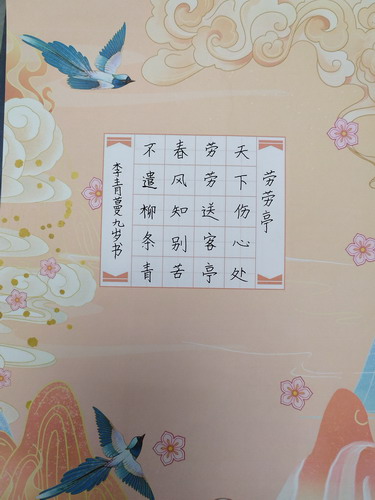 劳劳亭
天下伤心处
劳劳送客亭
春风知别苦
不遣柳条青
李青蔓九岁书